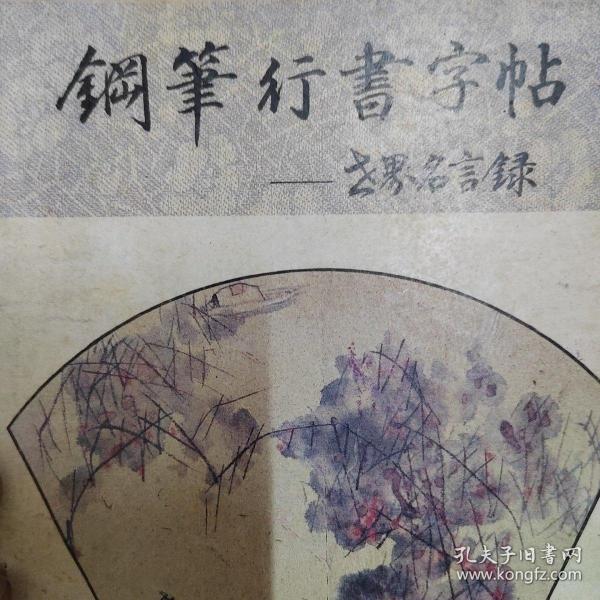 鋼筆行書字帖
——世界名言録
孔夫子旧书网
www.kongfz.com